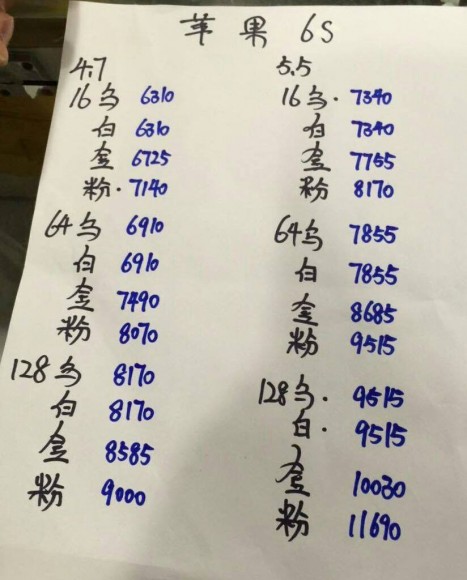 苹果 6S
4.7
16乌 6310
白 6310
金 6725
粉·7140
64乌 6910
白 6910
金 7490
粉 8070
128乌 8170
白 8170
金 8585
粉 9000
5.5
16乌·7340
白 7340
金 7755
粉 8170
64乌 7855
白 7855
金 8685
粉 9515
128乌·9515
白·9515
金 10030
粉 11690